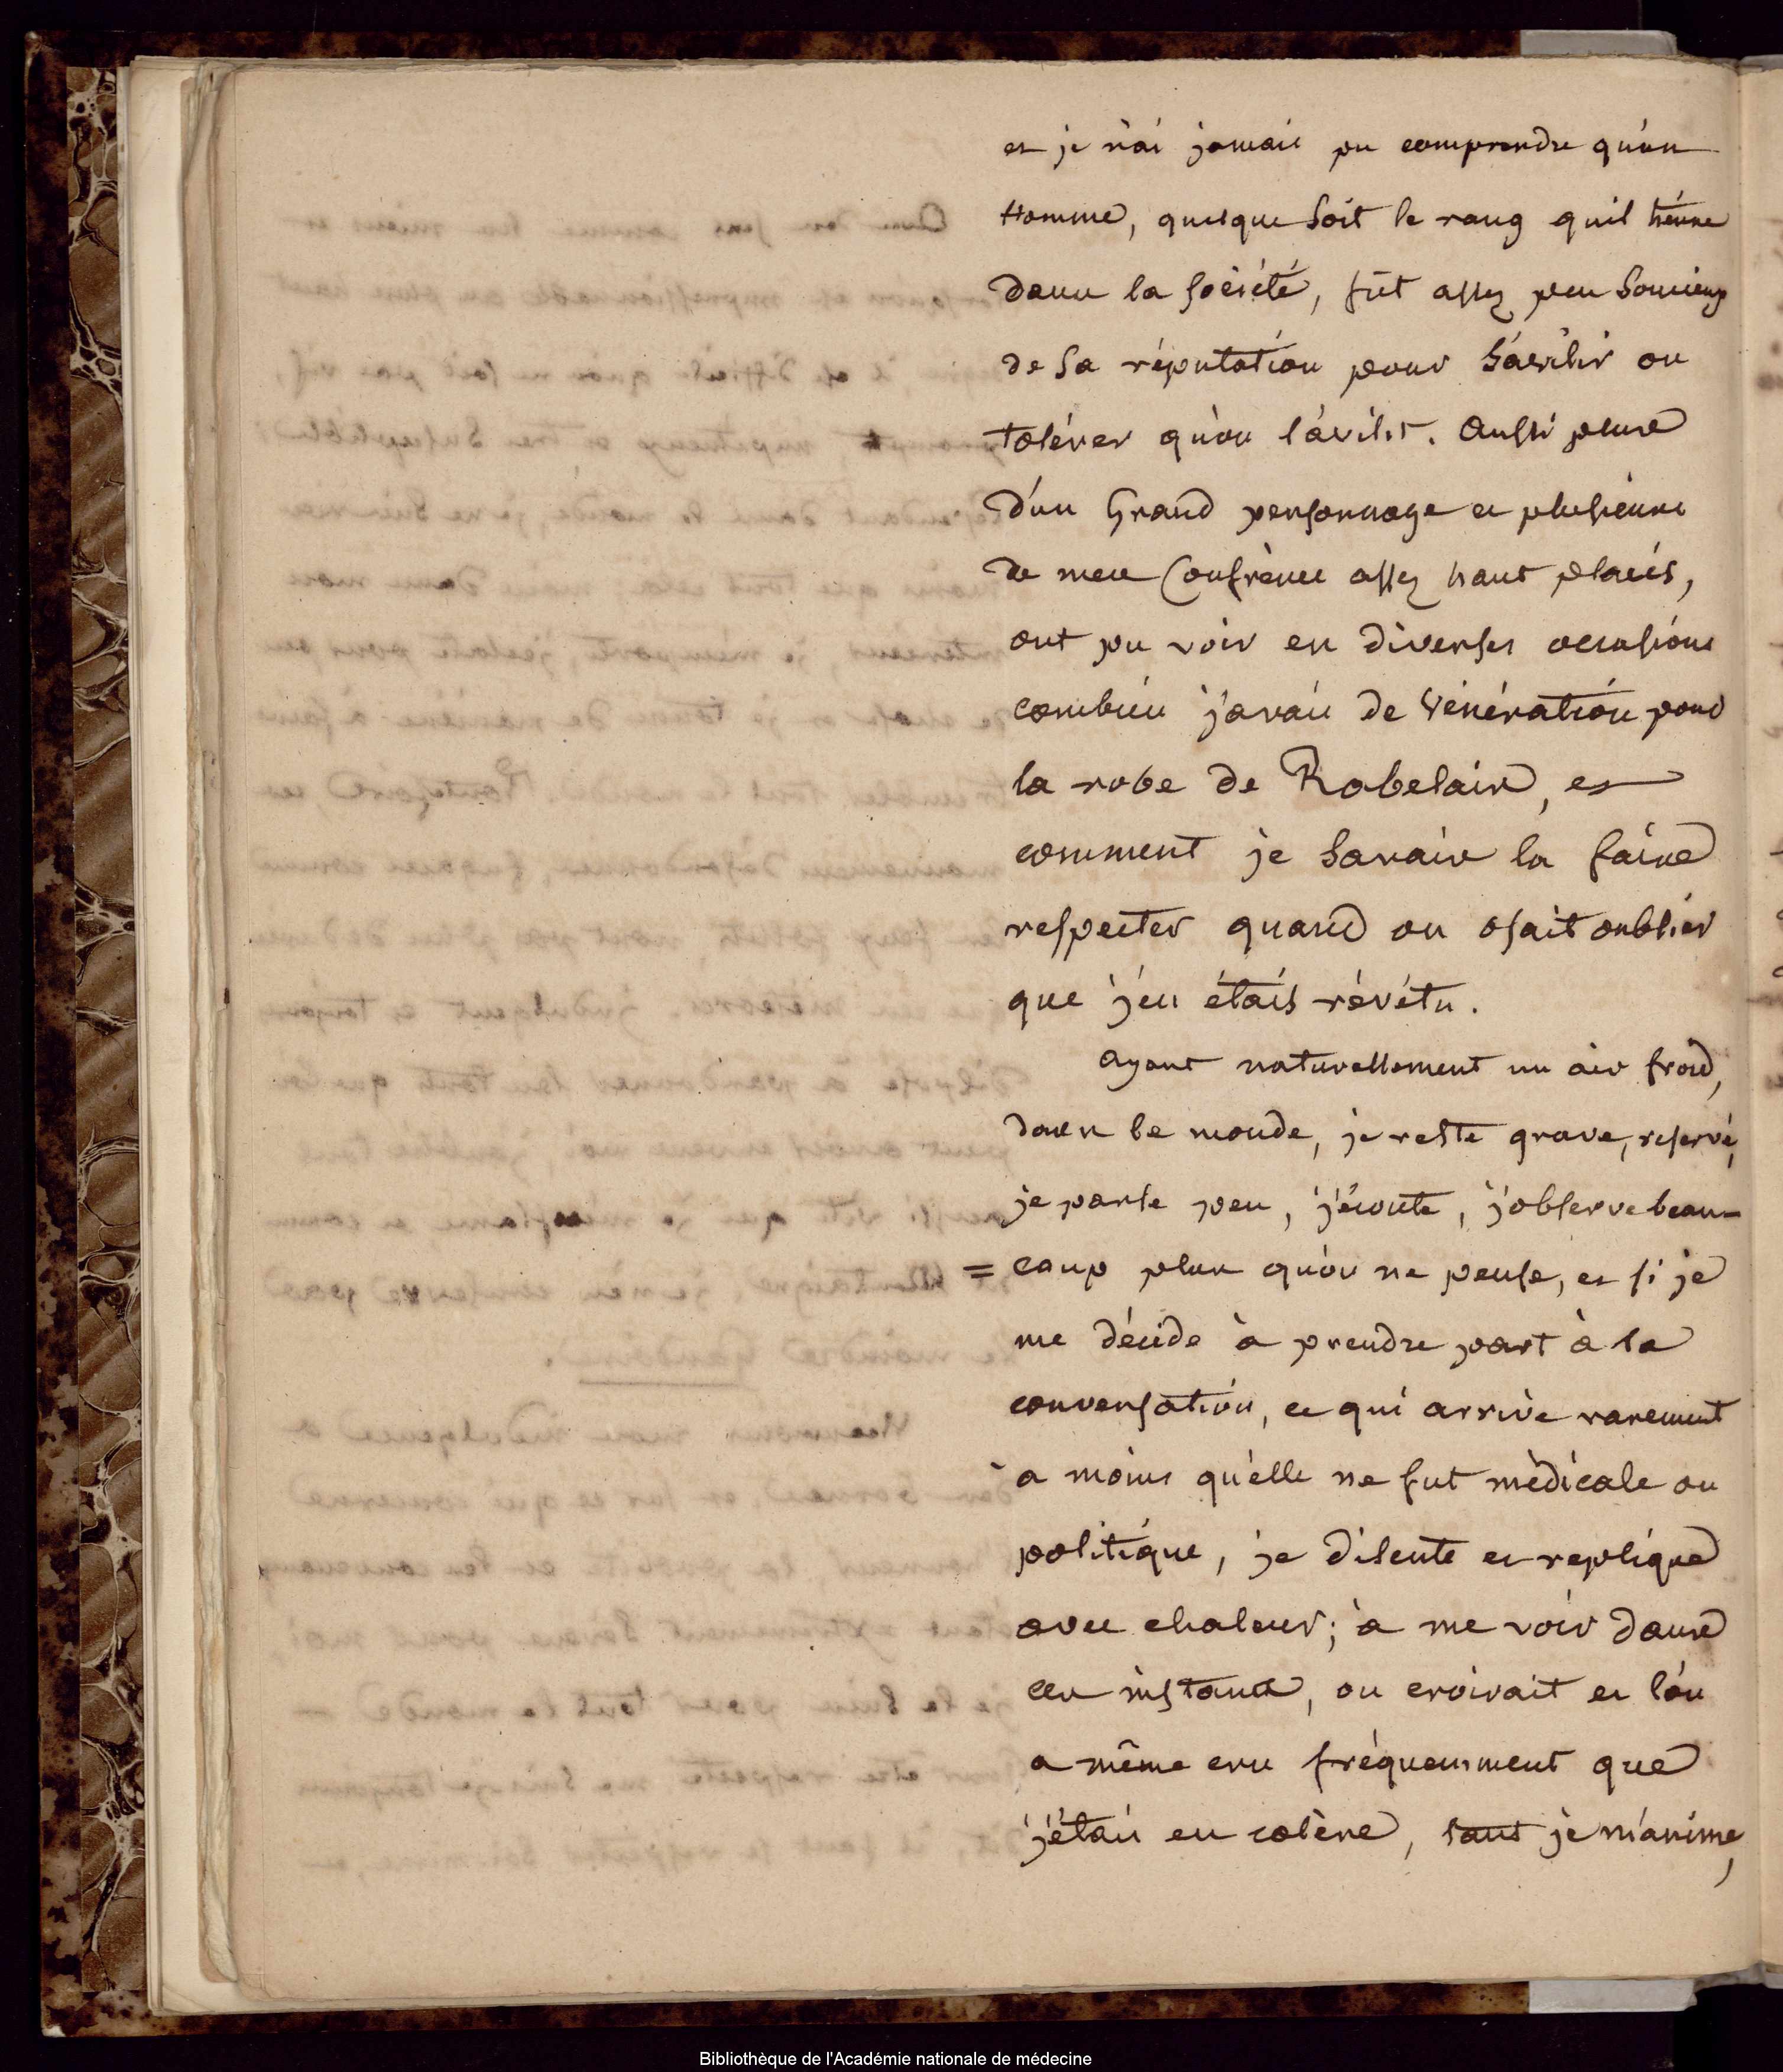 et je n'ai jamais pu comprendre qu'un
Homme, quelque soit le rang qu'il tienne
dans la société, fût assez peu soucieux
de sa réputation pour s'avilir ou
tolérer qu'on l'avilit. Aussi plus
d'un Grand personnage et plusieurs
de mes Confrères assez haut placés,
ont pu voir en diverses occasions
combien j'avais de vénération pour
la robe de Rabelais, et
comment je savais la faire
respecter quand on osait oublier
que j'en étais révétu.
ayant naturellement un air froid,
dans le monde, je reste grave, reservé,
je parle peu, j'écoute, j'observe beau-
= coup plus qu'on ne pense, et si je
me décide à prendre part à la
conversation, ce qui arrive rarement
à moins qu'elle ne fut médicale ou
politique, je discute et replique
avec chaleur; à me voir dans
ces instants, on croirait et l'on
a même cru fréquemment que
j'étais en colère, tant je m'anime,
Bibliothèque de l'Académie nationale de médecine